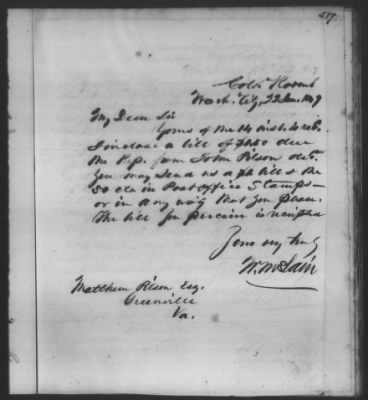 517
Colo. Rooms
Wash. City, 22 Jan. 1849
My Dear Sir
Yours of the 14 inst. is recd.
I inclose a bill of $ due
the Rep. from John Rison decd.
You may send us a $ bill & the
50 cts in Post Office Stamps
or in any way that you please.
The bill you perceive is
Yours very truly
W. McLain
Matthew Rison Esq.
Greenville
Va.